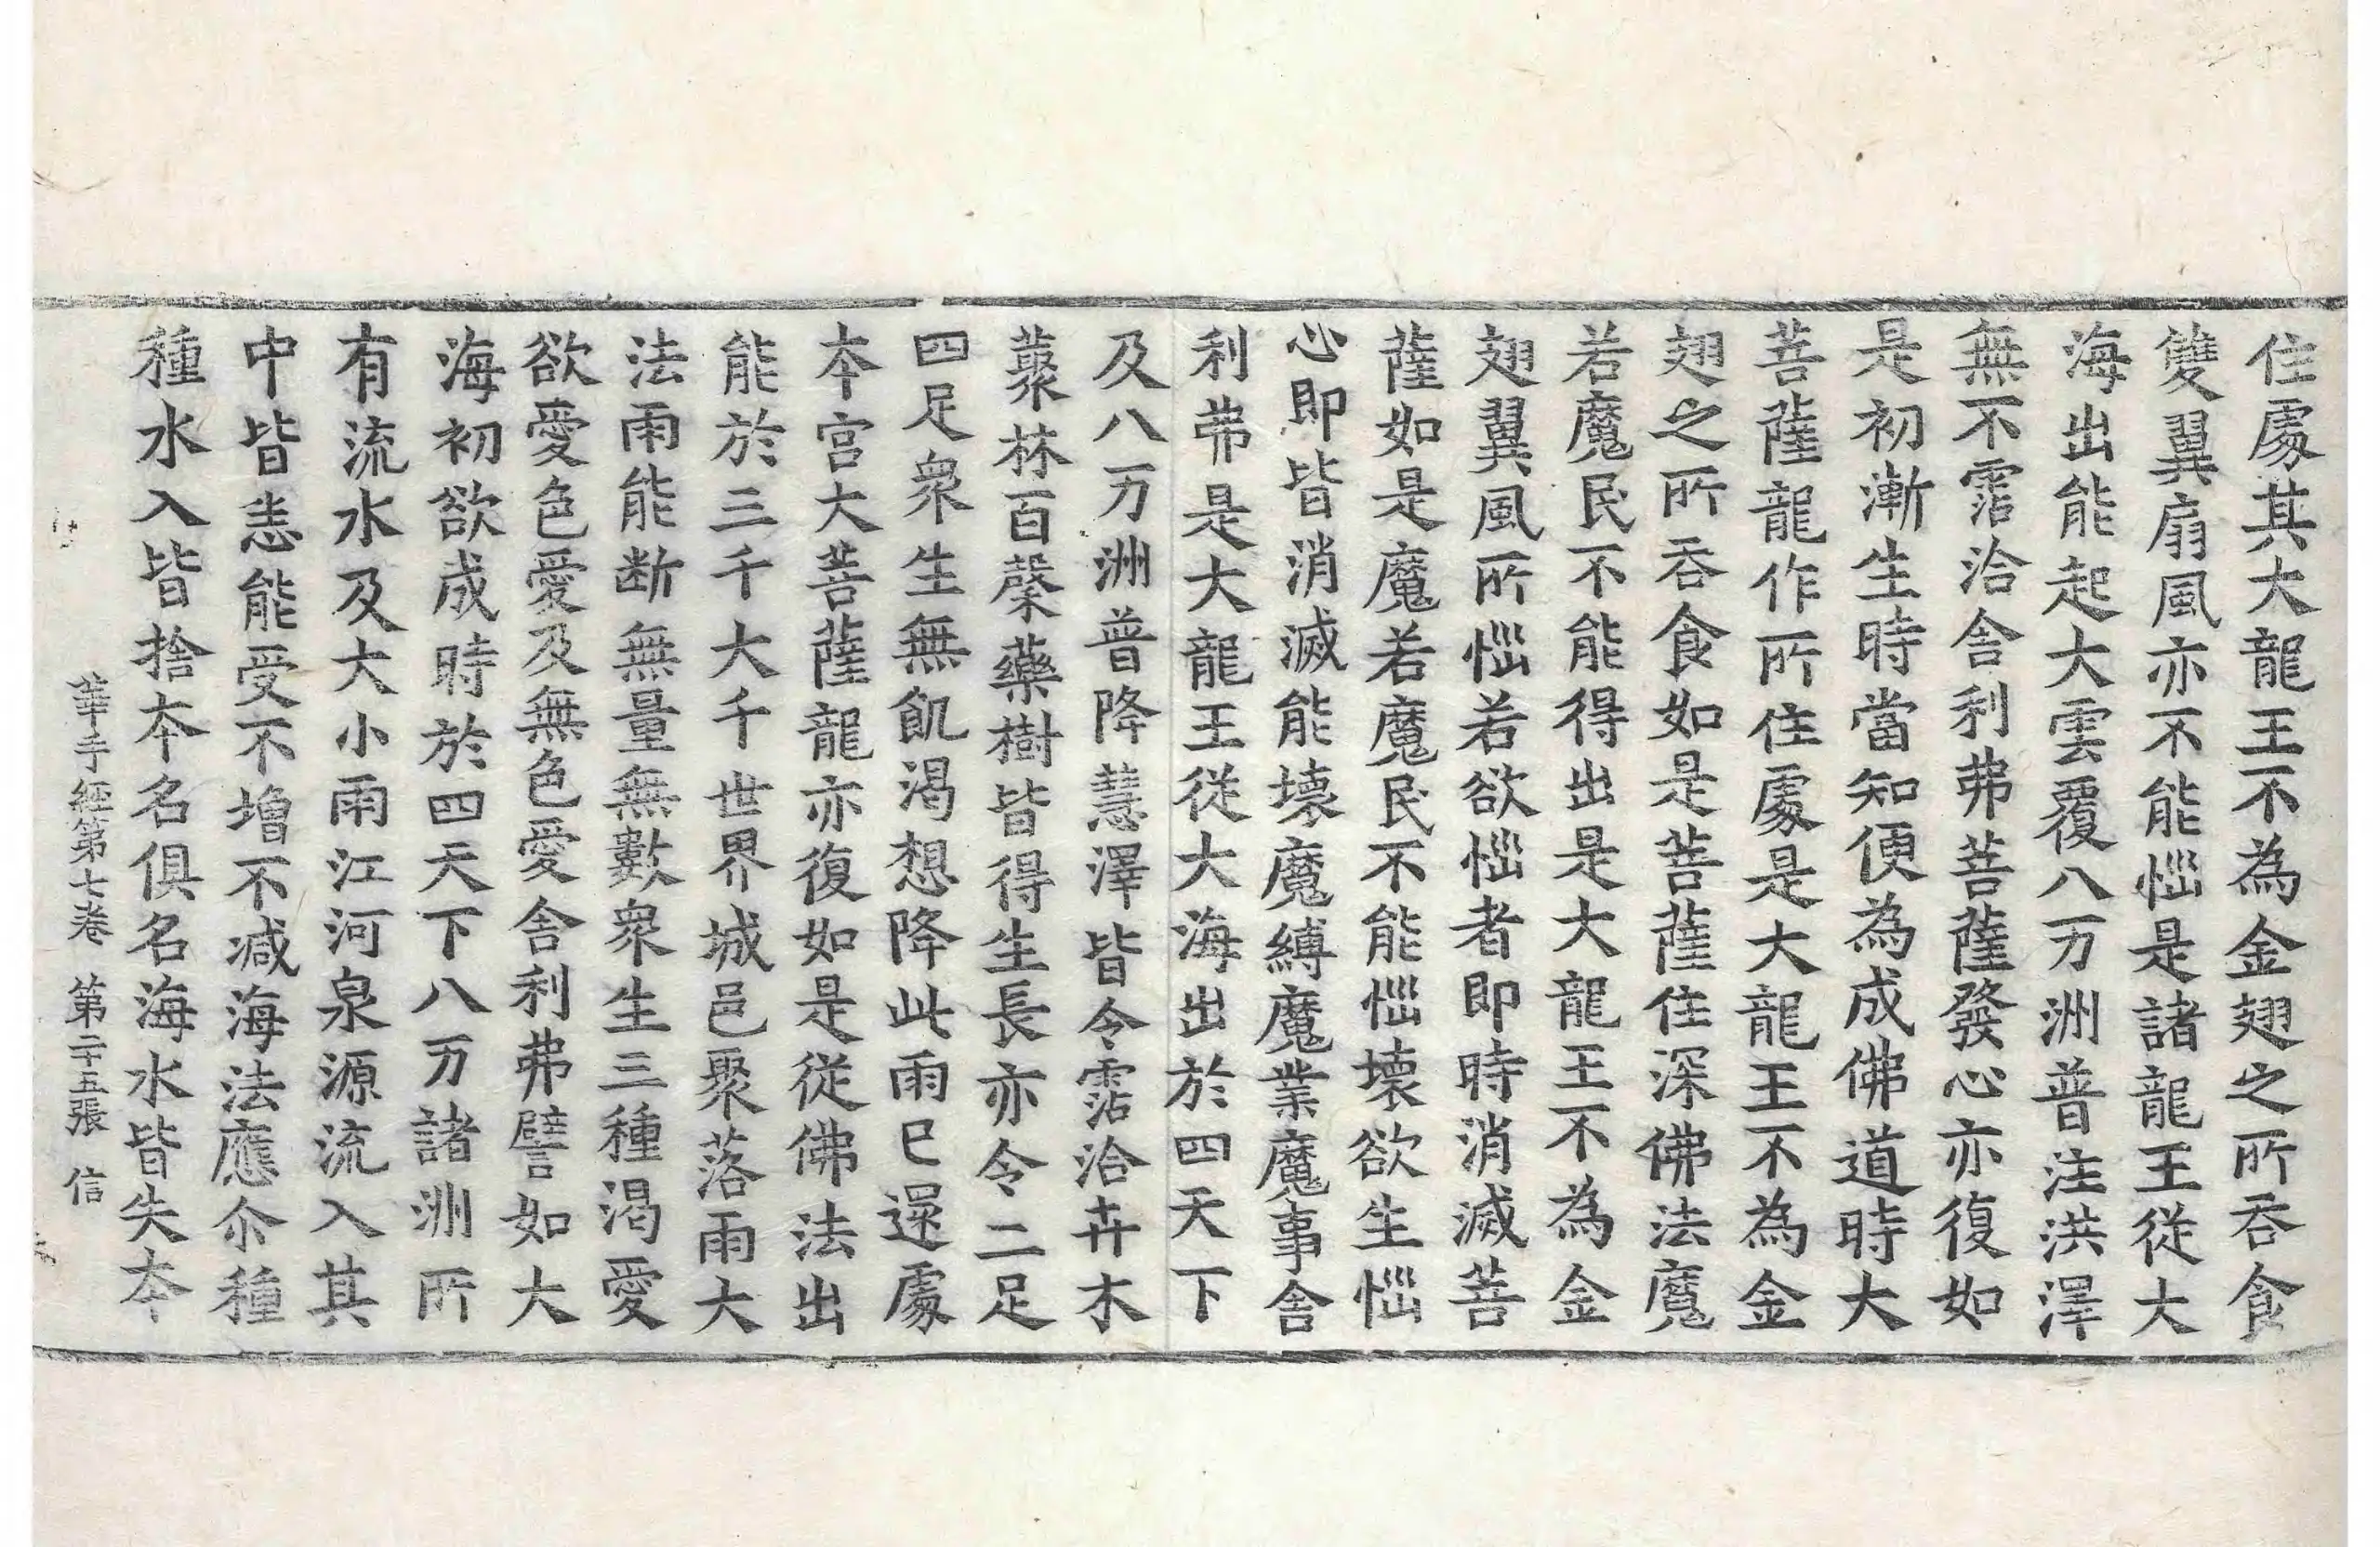 住處其大龍王不為金翅之所吞食
雙翼扇風亦不能惱是諸龍王從大
海出能起大雲覆八万洲普注洪澤
無不霑洽舍利弗菩薩發心亦復如
是初漸生時當知便為成佛道時大
菩薩龍作所住處是大龍王不為金
翅之所吞食如是菩薩住深佛法魔
若魔民不能得出是大龍王不為金
翅翼風所惱若欲惱者即時消滅菩
薩如是魔若魔民不能惱壞欲生惱
心即皆消滅能壞魔縛魔業魔事舍
利弗是大龍王從大海出於四天下
及八万洲普降慧澤皆令霑洽卉木
藂林百糓藥樹皆得生長亦令二足
四足衆生無飢渴想降此雨已還處
本宮大菩薩龍亦復如是從佛法出
能於三千大千世界城邑聚落雨大
法雨能断無量無數衆生三種渴愛
欲愛色愛及無色愛舍利弗譬如大
海初欲成時於四天下八万諸洲所
有流水及大小雨江河泉源流入其
中皆悉能受不增不减海法應尒種
種水入皆捨本名俱名海水皆失本
華手經第七卷 第二十五張 信